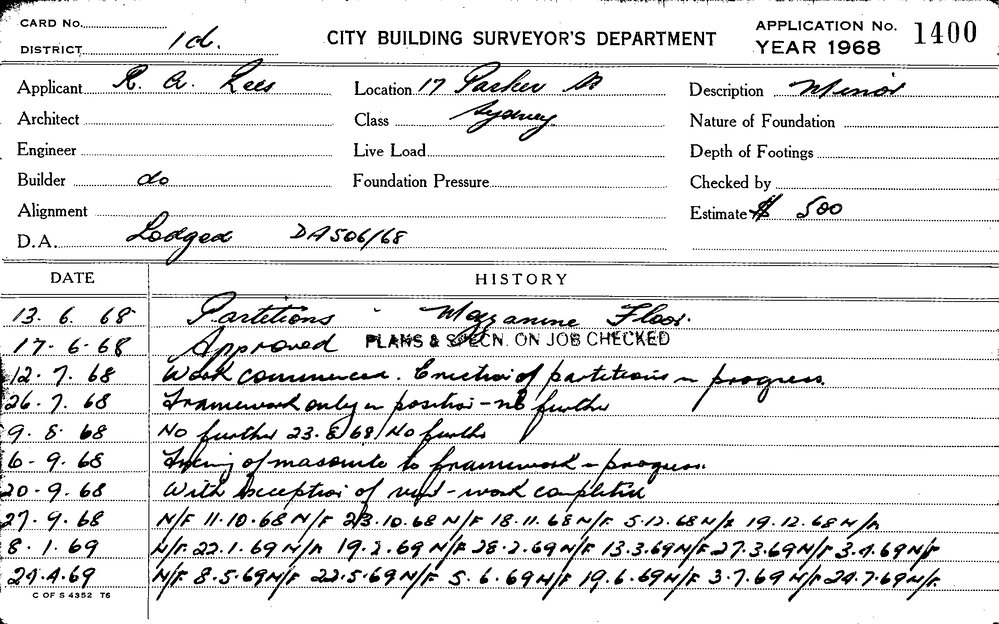 CARD No.
DISTRICT 1d.
CITY BUILDING SURVEYOR'S DEPARTMENT
APPLICATION No. 1400
YEAR 1968
Applicant R. A. Rees Location 17 Parker St Description Minor
Architect Class Sydney Nature of Foundation
Engineer Live Load Depth of Footings
Builder do Foundation Pressure Checked by
Alignment Estimate $ 500
D.A. Lodged DA506/68
DATE HISTORY
13. 6. 68 Partitions - Mezzanine Floor.
17-6-68 Approved PLANS & SPECN. ON JOB CHECKED
12. 7. 68 Work commenced. Erection of partitions in progress.
26. 7. 68 Framework only in position - no further
9. 8. 68 No further 23.8.68 No further
6-9.68 Fixing of masonite to framework in progress.
20-9.68 With exception of - work completed
27-9.68 N/F 11.10.68 N/F 23.10.68 N/F 18.11.68 N/F 5.12.68 N/F 19.12.68 N/A
8.1.69 N/F. 22.1.69 N/A 19.2.69 N/F 28.2.69 N/F 13.3.69 N/F 27.3.69 N/F 3.4.69 N/F
24.4.69 N/F 8.5.69 N/F 22.5.69 N/F 5.6.69 N/F 19.6.69 N/F 3.7.69 N/F 24.7.69 N/F.
C OF S 4352 T6